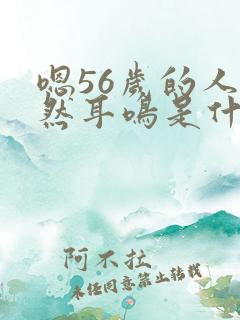 嗯56岁的人
然耳鸣是什
阿不拉
未经同意禁止转载